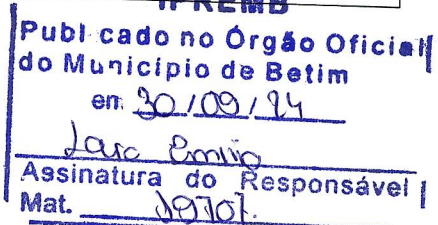 IPREMB
Publicado no Órgão Oficial
do Município de Betim
em 30/09/24
Assinatura do Responsável
Mat.